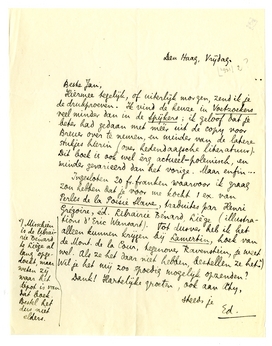 Den Haag, Vrijdag.
Beste Jan,
Hiermee tegelijk, of uiterlijk morgen, zend ik je
de drukproeven. Ik vind de keuze in Voetzoekers
veel minder dan in de Spijkers; ik geloof dat je
beter had gedaan met meer uit de copy voor
Breux over te nemen, en minder van de litera-
tuurtjes hierin (over hedendaagsche literatuur).
Dit boek is ook wel erg actueel-polemisch, en
minder gevarieerd dan het vorige. Maar enfin...
Ingesloten 20 fr. franken waarvoor ik graag
zou hebben dat je voor me kocht: en van
Perles de la Poésie Slave, traduites par Henri
Grégoire, ed. Librairie Bénard, Liège (illustra-
tions d'Eric Vannard). Tot dusver heb ik het
alleen kunnen krijgen bij Lamertin, hoek van
de Mont de la Cour, tegenover Ravenstein, je weet
wel. Als ze het daar niet hebben, bestellen ze het?
Wil je het mij zoo spoedig mogelijk opzenden?
Dank! Hartelijke groeten, ook aan Chy,
steeds je
Ed.
Misschien
is de librai-
rie Bénard
te Liège al
lang opge-
doekt, maar
weten zij
waar het
depot is van
het boek.
Bestel het
dus niet
elders.